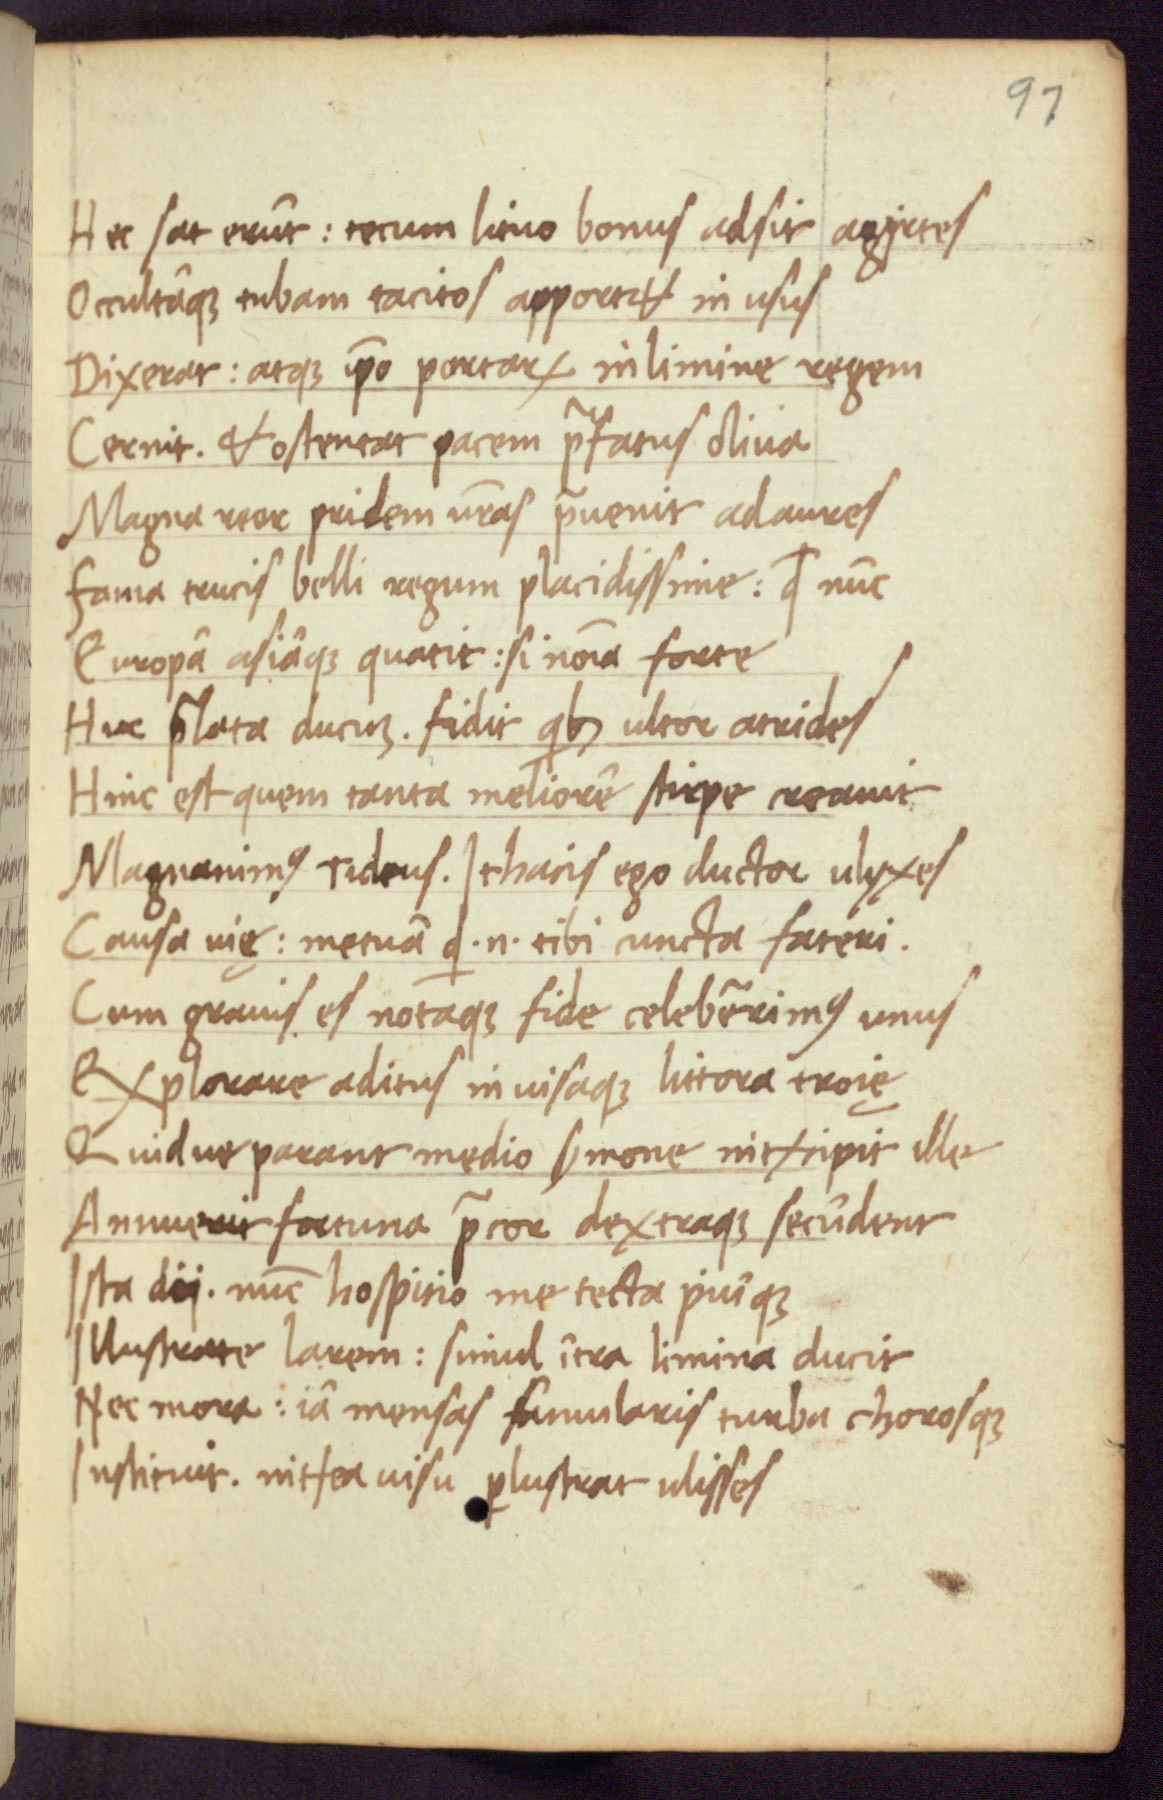 97
Hec sat erūt : tecum lituo bonus adsit agirtes
Occultāqꝫ tubam tacitos apportet in usus
Dixerat : atqꝫ ip̄o portaꝝ in limine regem
Cernit . & ostentat pacem p̄fatus oliua
Magna reor pridem ur̄as p̄uenit ad aures
fama trucis belli regum placidissime : q̄ nūc
Europā asiāqꝫ quatit : si noīa forte
Huc p̄lata ducuꝫ . fidit qbꝫ ultor atrides
Hinc est quem tanta meliorē stirpe creauit
Magnanimꝰ Tideus . Ithacis ego ductor ulyxes
Causa uię : metuā q̄ .n. tibi cuncta fateri .
Cum grauis es notāqꝫ fide celeber̄imꝰ unus
Explorare aditus inuisaqꝫ littora troię
Quidue parant medio ẜmone intꝛcipit ille
Annuerit fortuna p̄cor dextraqꝫ secūdent
Ista dij . nūc hospitio me tecta piūqꝫ
Illustrate larem : simul ītra limina ducit
Nec mora : iā mensas famularis turba chorosqꝫ
Instituit . intꝛea uisu ꝑlustrat ulisses